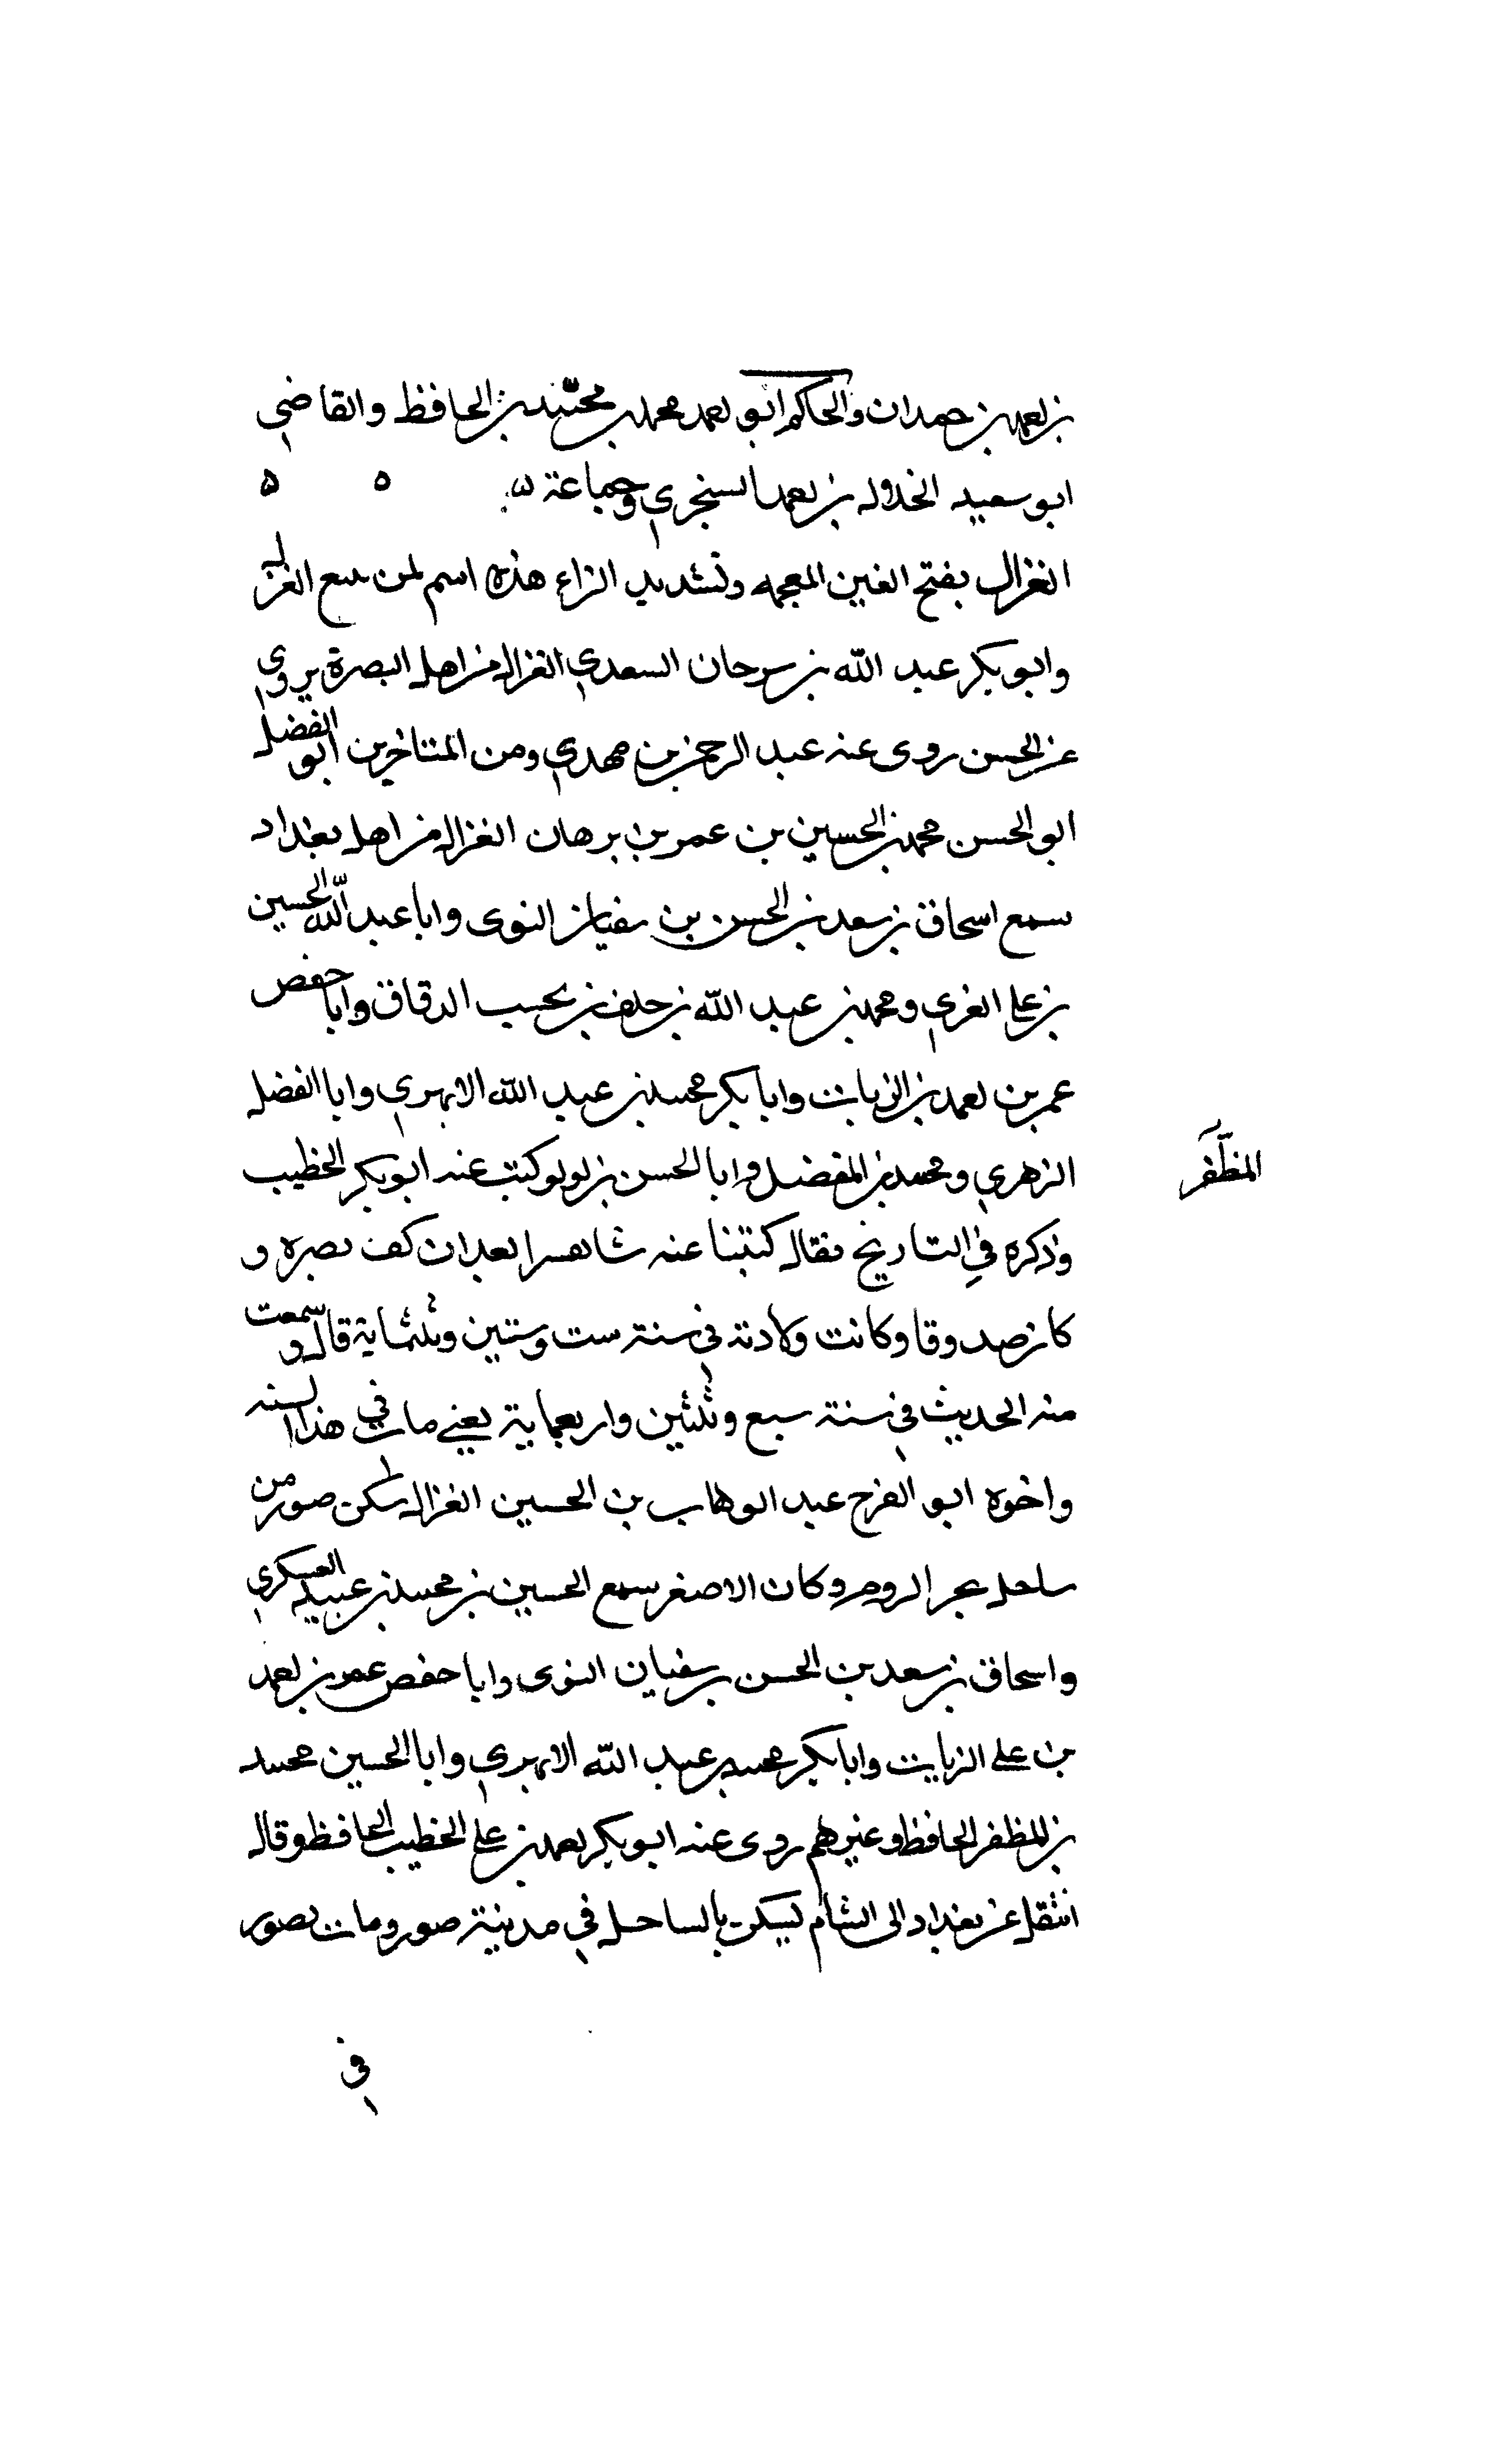 بن احمد بن حمدان والحاكم ابو احمد محمد بن محمد بن الحافظ والقاضي
ابو سعيد الخلال بن احمد السنجري وجماعة
الغزال بفتح الغين المعجمه وتشديد الزاء هذه اسم لمن يبيع الغزل
وابو بكر عبد الله بن سرحان السعدي الغزال من اهل البصرة يروي
عن الحسن روى عنه عبد الرحمن بن مهدي ومن المتاخرين ابو الفضل
ابو الحسن محمد بن الحسين بن عمر بن برهان الغزال من اهل بغداد
سمع اسحاق بن سعد بن الحسن بن سفيان النوى وابا عبد الله الحسين
بن علي الغزي ومحمد بن عبد الله بن خلف بن بحيب الدقاق وابا حفص
عمر بن احمد بن الزيات وابا بكر محمد بن عبد الله الابهري وابا الفضل
الزهري ومحمد بن المفضل وابا الحسن بن لولو كتب عنه ابو بكر الخطيب
المظفر
وذكره في التاريخ فقال كتبنا عنه بعد ان كف بصره و
كان صدوقا وكانت ولادته في سنة ست وستين وثلثماية قال وسمعت
منه الحديث في سنة سبع وثلثين واربعماية يعني مات في هذا السنه
واخوه ابو الفرج عبد الوهاب بن الحسين الغزال سكن صور من
ساحل بحر الروم وكان الاصغر سمع الحسين بن محمد بن عبيد العسكري
واسحاق بن سعد بن الحسن بن سفيان النوى وابا حفص عمر بن احمد
بن علي الزيات وابا بكر محمد بن عبد الله الابهري وابا الحسين محمد
بن المظفر الحافظ وغيرهم روى عنه ابو بكر احمد بن علي الخطيب الحافظ وقال
انتقل عن بغداد الى الشام ليسكن بالساحل في مدينة صور ومات بصور
في